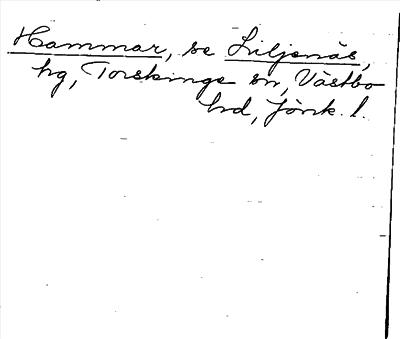 Hammar, se Liljenäs,
hg, Torskinge sn, Västbo
hd, Jönk. l.